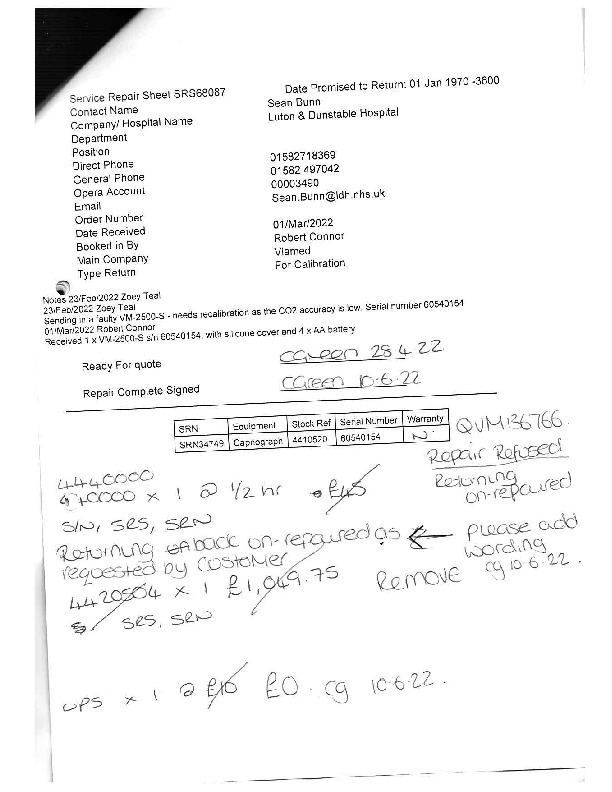 Service Repair Sheet SRS68087 Date Promised to Return: 01 Jan 1970 -3600
Contact Name Sean Bunn
Company/ Hospital Name Luton & Dunstable Hospital
Department
Position
Direct Phone 01582718369
General Phone 01582 497042
Opera Account 00003490
Email Sean.Bunn@ldh.nhs.uk
Order Number
Date Received 01/Mar/2022
Booked in By Robert Connor
Main Company Viamed
Type Return For Calibration
Notes 23/Feb/2022 Zoey Teal
23/Feb/2022 Zoey Teal
Sending in a faulty VM-2500-S - needs recalibration as the CO2 accuracy is low. Serial number 60540154
01/Mar/2022 Robert Connor
Received 1 x VM-2500-S s/n 60540154, with silicone cover and 4 x AA battery
Ready For quote CGreen 28 4 22
Repair Complete Signed CGreen 10-6-22
SRN Equipment Stock Ref Serial Number Warranty
SRN34749 Capnograph 4410520 60540154 N.
QVM136766.
Repair Refused
Returning
un-repaired
4440000
x 1 @ 1/2 hr £45
S/N, SRS, SRN
Returning back un-repaired as ← please add
requested by customer wording
cg 10-6-22.
4420504 x 1 £1,049.75 REMOVE
SRS, SRN
UPS x 1 @ £10 £0. cg 10-6-22.